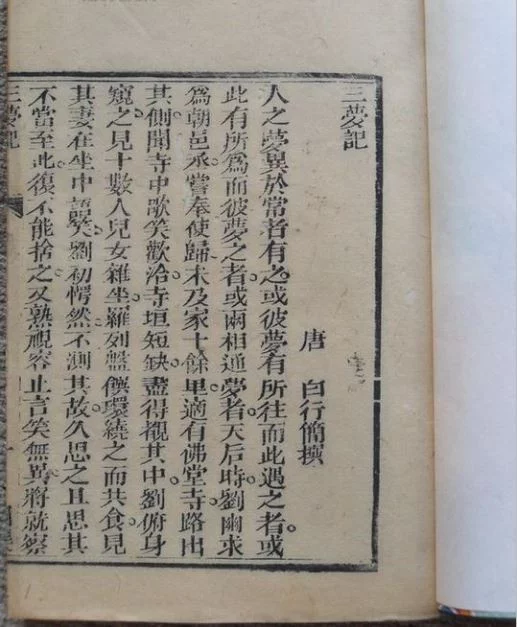 三夢記
唐 白行簡撰
人之夢異於常者有之。或彼夢有所往而此遇之者。或
此有所爲而彼夢之者。或兩相通夢者。天后時。劉幽求
爲朝邑丞。嘗奉使歸。未及家十餘里。適有佛堂寺。路出
其側。聞寺中歌笑歡洽。寺垣短缺。盡得覩其中。劉俯身
窺之。見十數人兒女雜坐。羅列盤饌。環繞之而共食。見
其妻在坐中語笑。劉初愕然。不測其故。久思之。且思其
不當至此。復不能捨之。又熟視容止言笑無異。將就察
三夢記